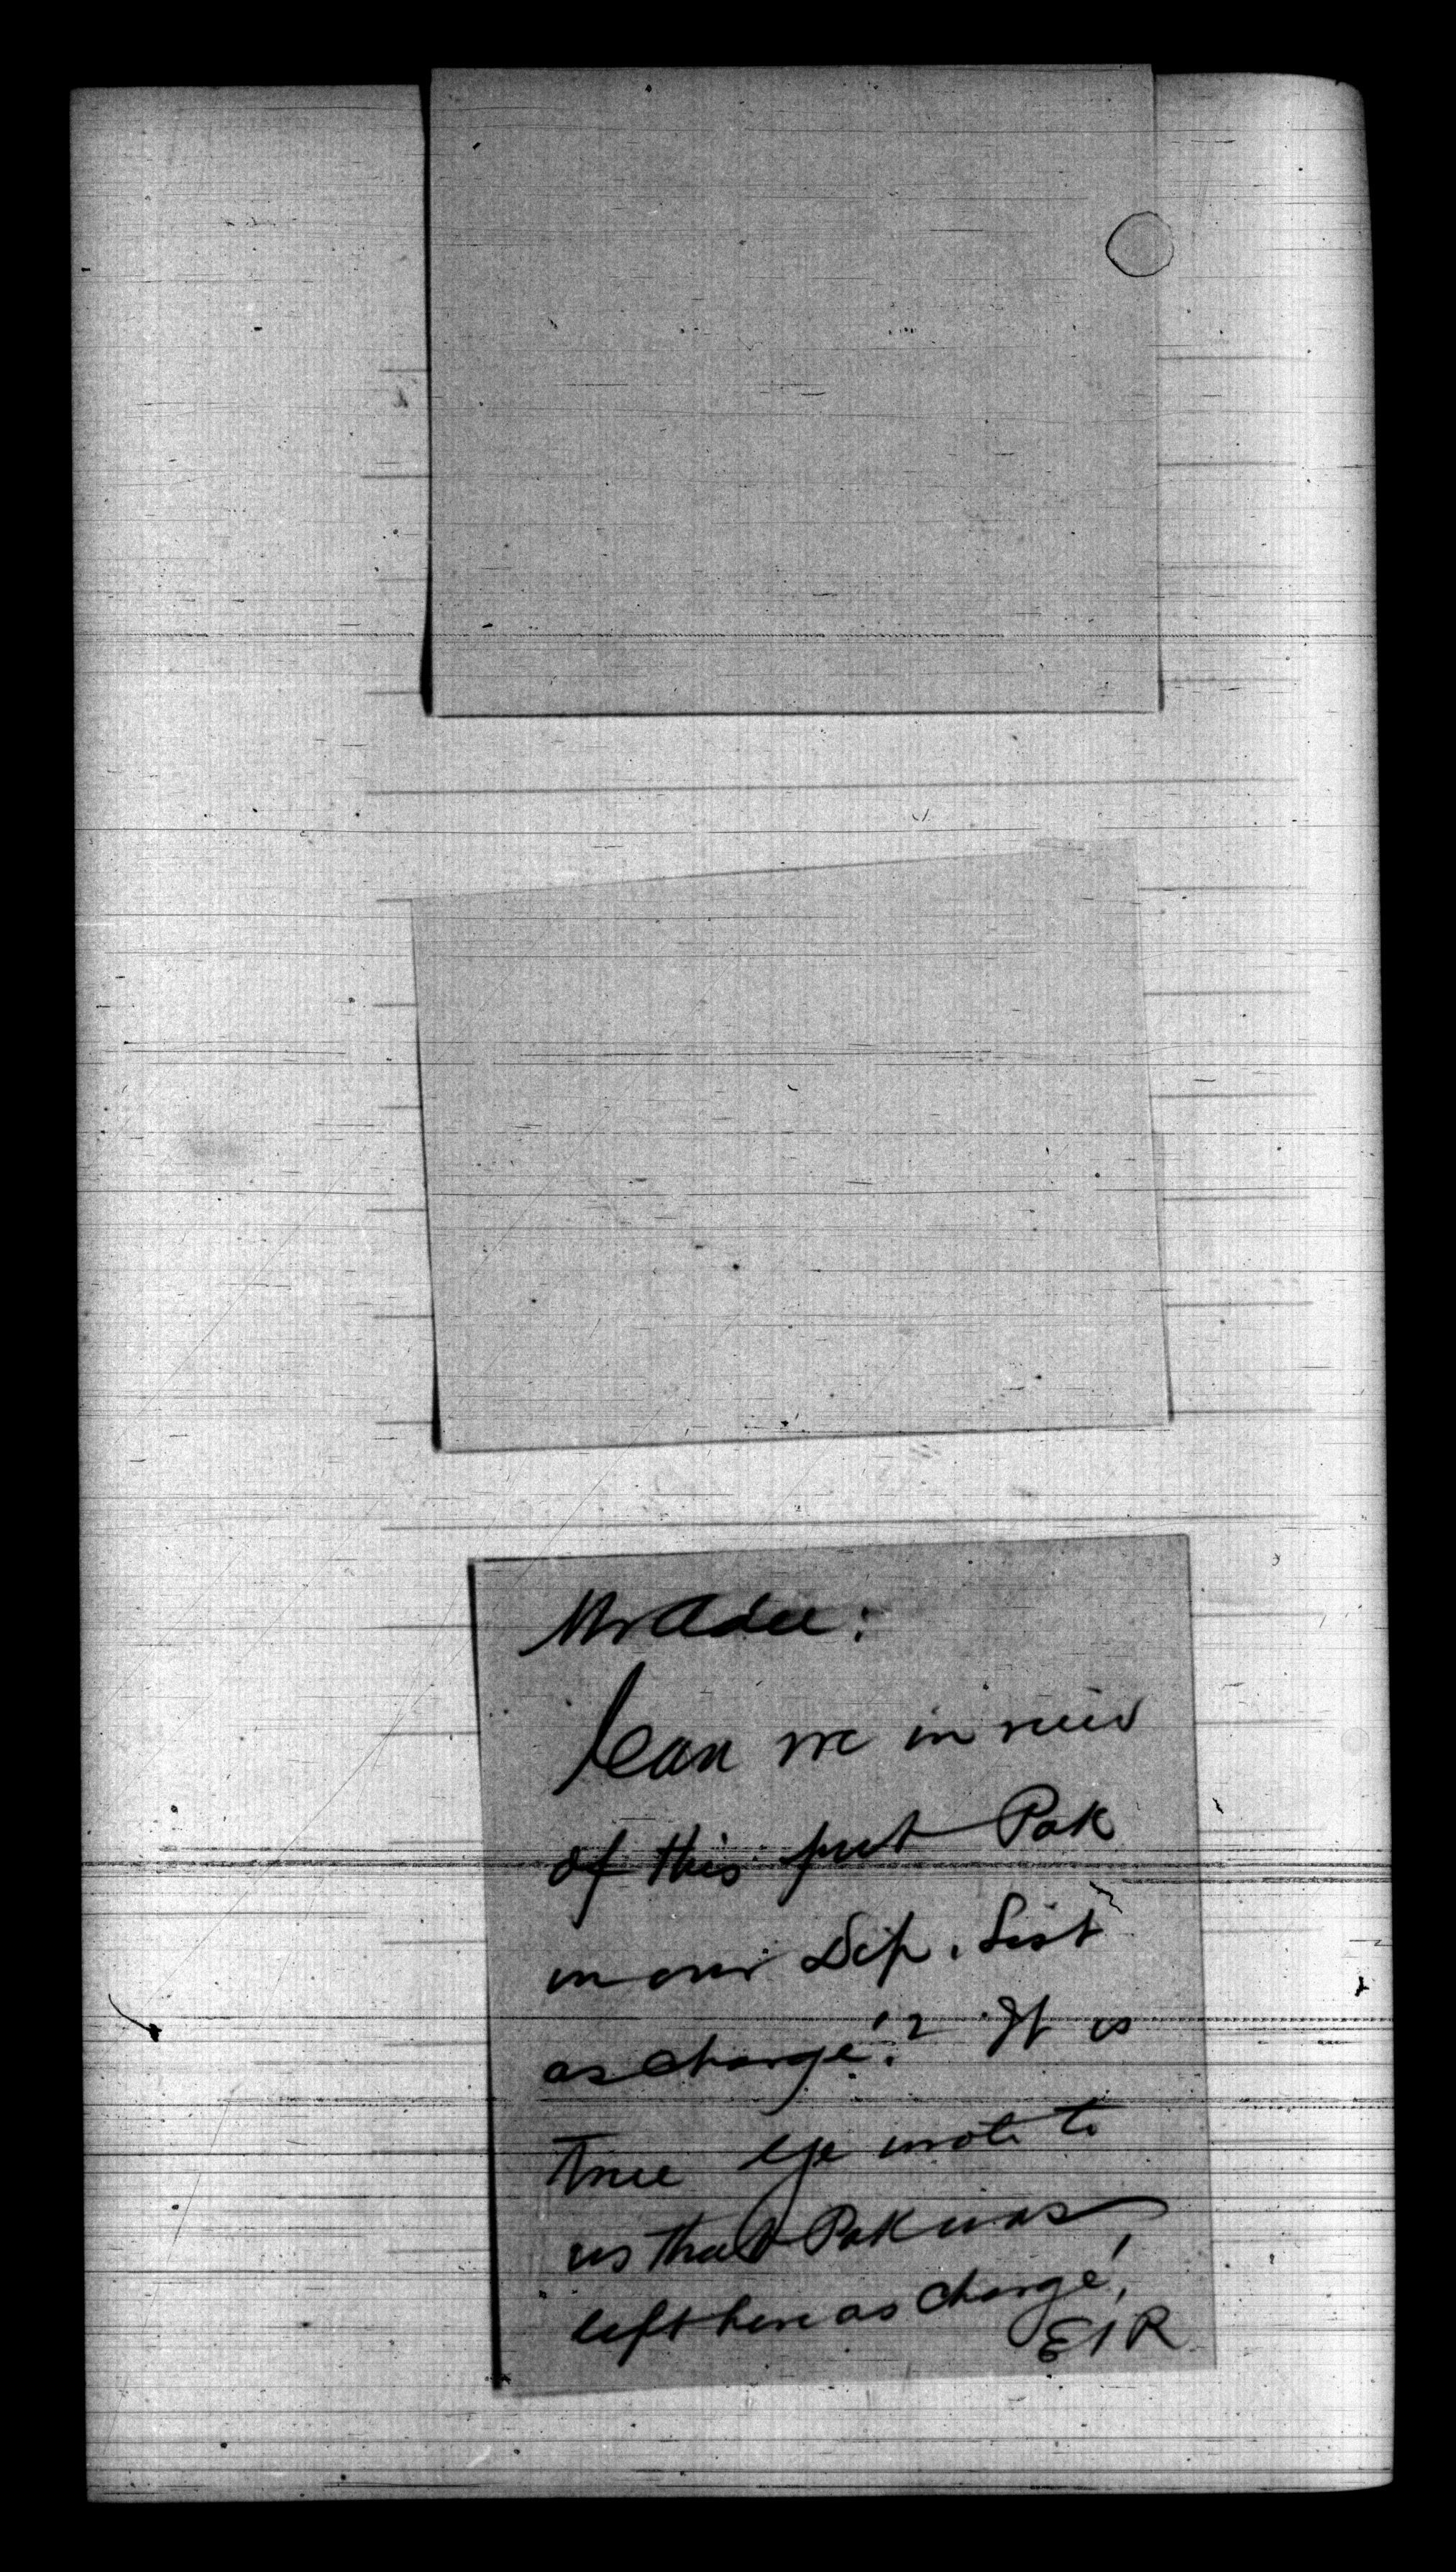 Mr Adee:
Can we in view
of this put Pak
in our Dip. List
as chargé? It is
true Ye wrote to
us that Pak was
left here as chargé,
EIR